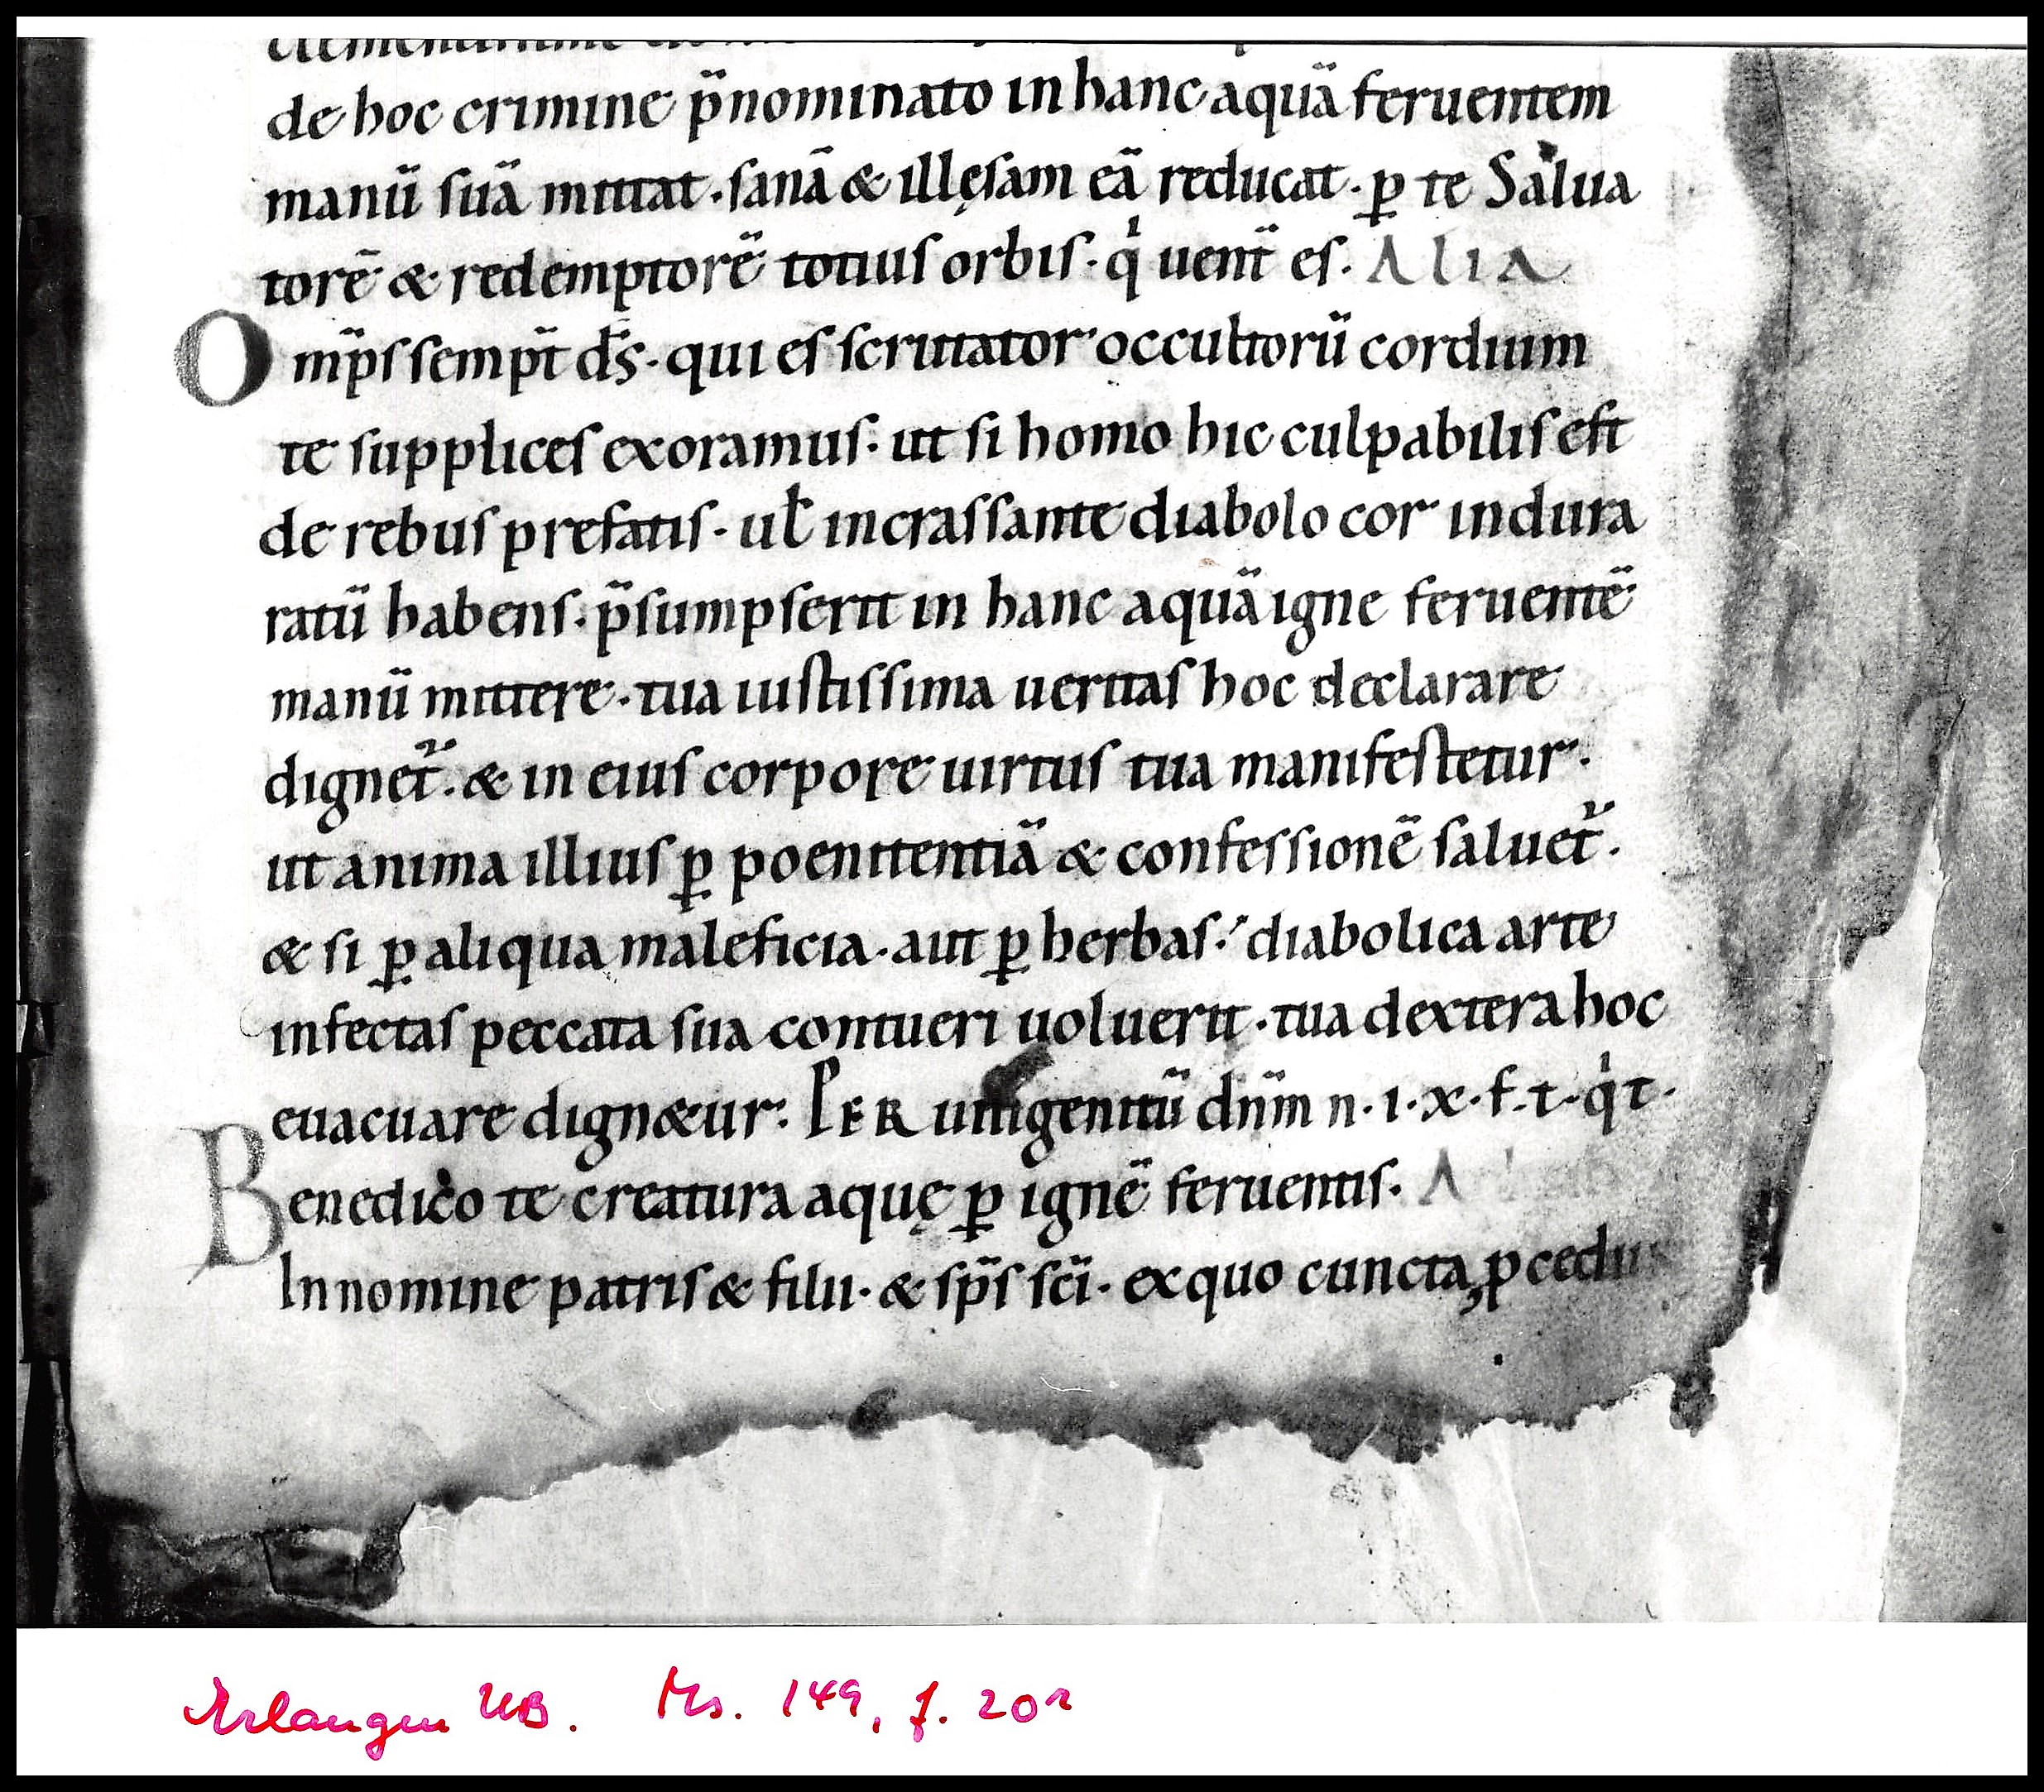 de hoc crimine p̃nominato in hanc aquā feruentem
manū suā mittat · sanā & illęsam eā reducat · ꝑ te Salua
torē & redemptorē totius orbis · qͥ uent̄ es. Alia
Omp̄s semp̄t d̄s · qui es scrutator occultorū cordium
te supplices exoramus : ut si homo hic culpabilis est
de rebus prefatis · ut̄ incrassante diabolo cor indura
ratū habens · p̃sumpserit in hanc aquā igne feruentē
manū mittere · tua iustissima ueritas hoc declarare
dignet᷑ · & in eius corpore uirtus tua manifestetur ·
ut anima illius ꝑ poenitentiā & confessionē saluet᷑ ·
& si ꝑ aliqua maleficia · aut ꝑ herbas · diabolica arte
infectas peccata sua contueri uoluerit · tua dextera hoc
euacuare dign&ur : PER unigenitū dn̄m n · i · x · f · t · qͥ t ·
Benedico te creatura aquę ꝑ ignē feruentis ·
In nomine patris & filii · & sp̄s sc̄i · ex quo cuncta ꝓcedu
Erlangen UB. Ms. 149, f. 20r